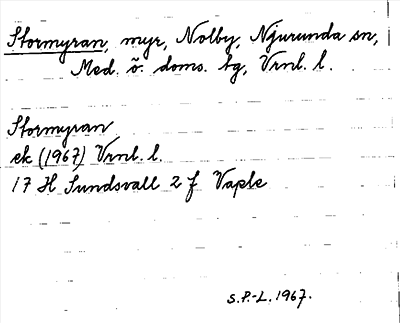 Stormyran, myr, Nolby, Njurunda sn,
Med. ö. doms. tg, Vrnl. l.
Stormyran
ek (1967) Vrnl. l.
17 H Sundsvall 2 f Vaple
S.P.-L. 1967.